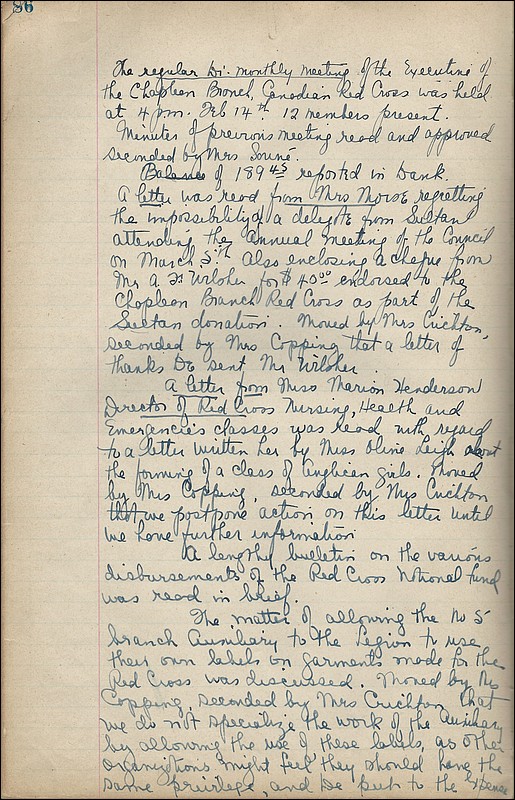 86
The regular bi-monthly meeting of the Executive of
the Chapleau Branch, Canadian Red Cross was held
at 4 p.m. Feb 14th. 12 members present.
Minutes of previous meeting read and approved
seconded by Mrs
Balance of 189 45 reported in bank.
A letter was read from Mrs Morse regretting
the impossibility of a delegate from Sultan
attending the Annual meeting of the Council
on March 5th. Also enclosing a cheque from
Mr A. for $40 00 endorsed to the
Chapleau Branch Red Cross as part of the
Sultan donation. Moved by Mrs Crichton,
seconded by Mrs Copping that a letter of
thanks be sent Mr
A letter from Miss Marion Henderson
Director of Red Cross Nursing, Health and
Emergencies classes was read with regard
to a letter written her by Miss Olive Leigh about
the forming of a class of Anglican girls. Moved
by Mrs Copping, seconded by Mrs Crichton
that we postpone action on this letter until
we have further information
A lengthy bulletin on the various
disbursements of the Red Cross National fund
was read in brief.
The matter of allowing the No 5
branch Auxiliary to the Legion to use
their own labels on garments made for the
Red Cross was discussed. Moved by Mrs
Copping, seconded by Mrs Crichton that
we do not specialize the work of the Auxiliary
by allowing the use of these labels, as other
organizations might feel they should have the
same privilege, and be put to the expense